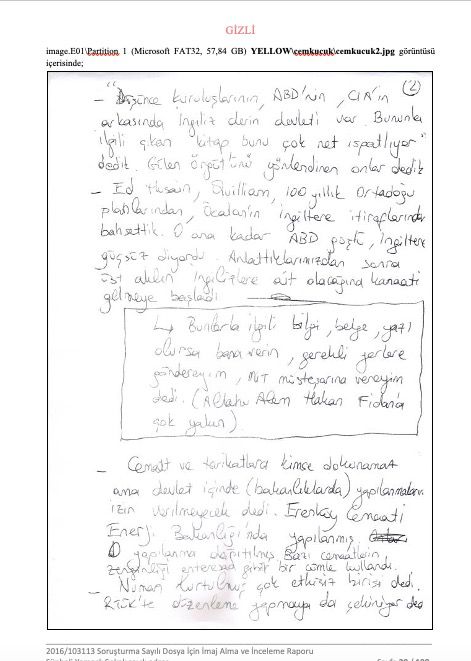 GİZLİ
image.E01\Partition 1 (Microsoft FAT32, 57,84 GB) YELLOW\cemkucuk\cemkucuk2.jpg görüntüsü
içerisinde;
(2)
"
- Düşünce kuruluşlarının, ABD'nin, CIA'in
arkasında İngiliz derin devleti var. Bununla
ilgili çıkan kitap bunu çok net ispatlıyor"
dedik. Gülen Örgütünü yönlendiren onlar dedik
- Ed Husain, Quilliam, 100 yıllık Ortadoğu
planlarından, Öcalan'ın İngiltere itiraflarından
bahsettik. O ana kadar ABD , İngiltere
güçsüz diyordu. Anlattıklarımızdan sonra
üst aklın İngilizlere ait olacağına kanaati
gelmeye başladı
↳ Bunlarla ilgili bilgi, belge, yazı
olursa bana verin, gerekli yerlere
göndereyim, MİT müsteşarına vereyim
dedi. (Allahu Alem Hakan Fidan'a
çok yakın).
- Cemaat ve tarikatlara kimse dokunamaz
ama devlet içinde (bakanlıklarda) yapılanmaları
izin verilmeyecek dedi. Erenköy Cemaati
Enerji Bakanlığı'nda yapılanmış.
O yapılanma dağıtılmış. Bazı cemaatlerin
zenginliği enteresan gibi bir cümle kullandı.
- Numan Kurtulmuş çok etkisiz birisi dedi.
RTÜK'te düzenleme yapmaya da çekiniyor dedi
2016/103113 Soruşturma Sayılı Dosya İçin İmaj Alma ve İnceleme Raporu